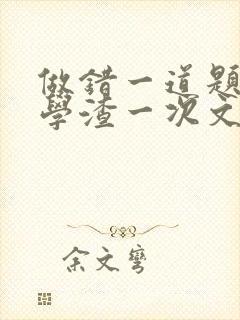 做錯一道題
學渣一次文
余文彎